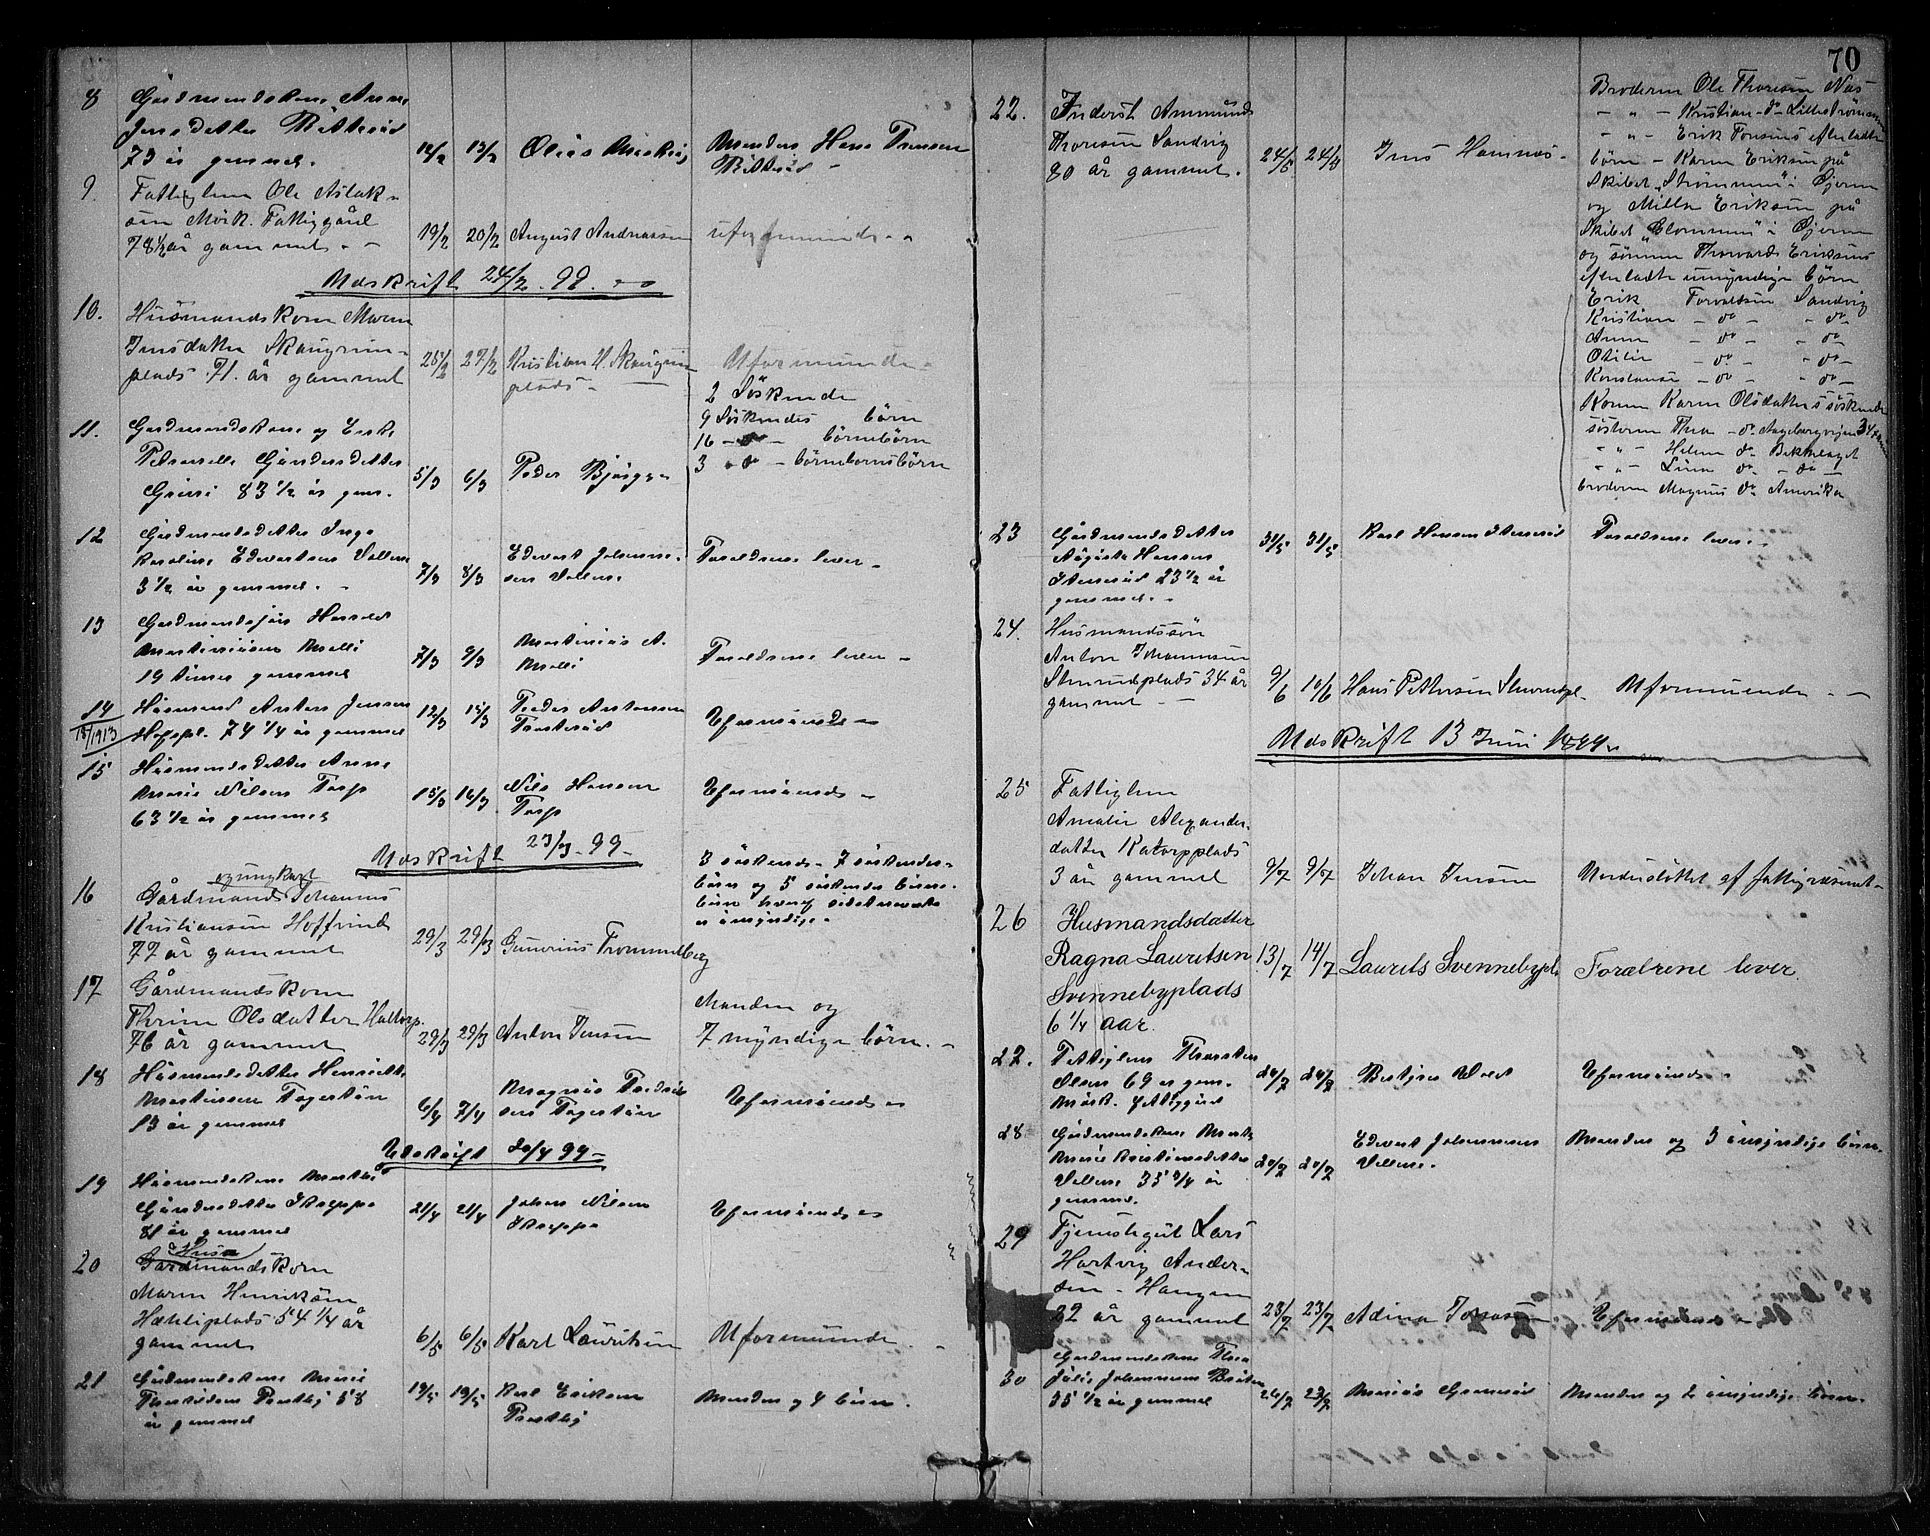 70
8 Gårdmandskone Anne
Jensdatter Bitterud
73 år gammel. 12/2 13/2 Olaus Mastrøg Manden Hans Jensen
Bitterud -
9. Fattiglem Ole Aslak-
sen Mørk. Fattiggård
78 1/2 år gammel. - 19/2 20/2 August Andreassen uformuende -
Udskrift 24/2 99.
10. Husmandskone Maren
Jensdatter Skaugrim-
plads 71. år gammel 25/2 27/2 Kristian H. Skaugrim
plads - Uformuende -
2 Søskende
9 Søskendes børn
16 - do - børnebørn
3 - do - børnebornsbörn
11. Gårdmandskone og Enke
Petronelle Gundersdatter
83 1/2 år gam. 5/3 6/3 Peder
12 Gårdmandsdatter Inga
Karoline Edvartsen Vollene
3 1/2 år gammel. - 7/3 8/3 Edvart Johannes-
sen Vollene. Forældrene lever -
13 Gårdmandssøn Harald
Martiniusen Melli
19 timer gammel 7/3 9/3 Martinius A.
Melli Forældrene lever -
14 Husmand Anton Jensen
15/1913 Hofspl. 74 1/4 år gammel 12/3 15/3 Peder Antonsen
Uformuende
15 Husmandsdatter Anne
Marie Nilsen Torp
63 1/2 år gammel 15/3 16/3 Nils Hansen
Torp Uformuende -
Udskrift 23/3 99 -
16 ogungkarl
Gårdmands Johannes
Kristiansen Hoffvind
77 år gammel 29/3 29/3 Gunerius Frommelberg
3 søskende - 7 søskende-
börn og 5 søskendes börne-
börn hvoraf sidstnævnte
er umyndige -
17 Gårdmandskone
Thrine Olsdatter Haltorp.
76 år gammel 29/3 29/3 Anton Jensen Manden og
7 myndige børn. -
18 Husmandsdatter Henriette
Martinsen Fagertun
13 år gammel 6/4 7/4 Magnus Fredrik
sen Fagertun Uformuende
Udskrift 20/4 99 -
19 Husmandskone Marthe
Gundersdatter Skreppe
81 år gammel 21/4 21/4 Johan Nilsen
Skreppe Uformuende
20 Husm
Gårdmandskone
Maren Henriksen
Hæhliplads 54 1/4 år
gammel 6/5 6/5 Karl Lauritsen Uformuende -
21 Gårdmandskone Marie
Præstlij 58
år gammel 19/5 19/5 Karl Eriksen
Præstlij Manden og 4 børn.
22. Inderst Ammund
Thoresen Sandvig
80 år gammel. 24/5 24/5 Jens Hamnæs -
Broderen Ole Thoresen Næs
- " - Kristian - do - Lillestrømmen
- " - Erik efterladte
börn - Karen Eriksen på
Skibet "Strømmen" i Öjeren
og Milla Eriksen på
Skibet "Glommen" i Öjeren
og sønnen Thorvard Eriksens
efterladte umyndige børn
Erik Torvaldsen Sandvig
Kristian - do - - do -
Anna - do - - do
Otilie - do - - do -
Konstanse - do - - do -
Konen Karen Olsdatters søskende
søsteren Thea - do Aageborgvejen 34
- " - Helene do
- " - Lina do - do -
broderen Magnus do Amerika
23 Gårdmandsdatter
Augusta Hansen
Stenerud 23 1/2 år
gammel. - 31/5 31/5 Karl Hansen Stenerud Forældrene lever -
24. Husmandssøn
Anton Johannesen
Stenrudsplads 34 år
gammel - 9/6 10/6 Hans Pettersen Stenrudpl. Uformuende -
Udskrift 13 Juni 1899.
25 Fattiglem
Amalie Alexander-
datter Ratorpplads
3 år gammel 9/7 9/7 Johan Jensen Understöttet af fattigvæsenet -
26 Husmandsdatter
Ragna Lauritsen
Svennebyplads
6 1/4 aar. 13/7 14/7 Laurits Svennebypl. Forældrene lever
27. Fattiglem Thorsten
Olsen 69 år gam.
Mørk. fattiggård 20/7 20/7 Bestyrer Vold Uformuende -
28 Gårdmandskone Marthe
Marie Kristiansdatter
Vollene 35 3/4 år
gammel. 20/7 20/7 Edvart Johannessen
Vollene. Manden og 3 umyndige börn.
29 Tjenestegut Lars
Hartvig Ander-
sen - Haugen
22 år gammel 23/7 23/7 Adina Uformuende -
30 Gårdmandskone Thea
Julie Johannessen Bråten
35 1/2 år gammel 22/7 23/7 Marius Manden og 2 umyndige börn.